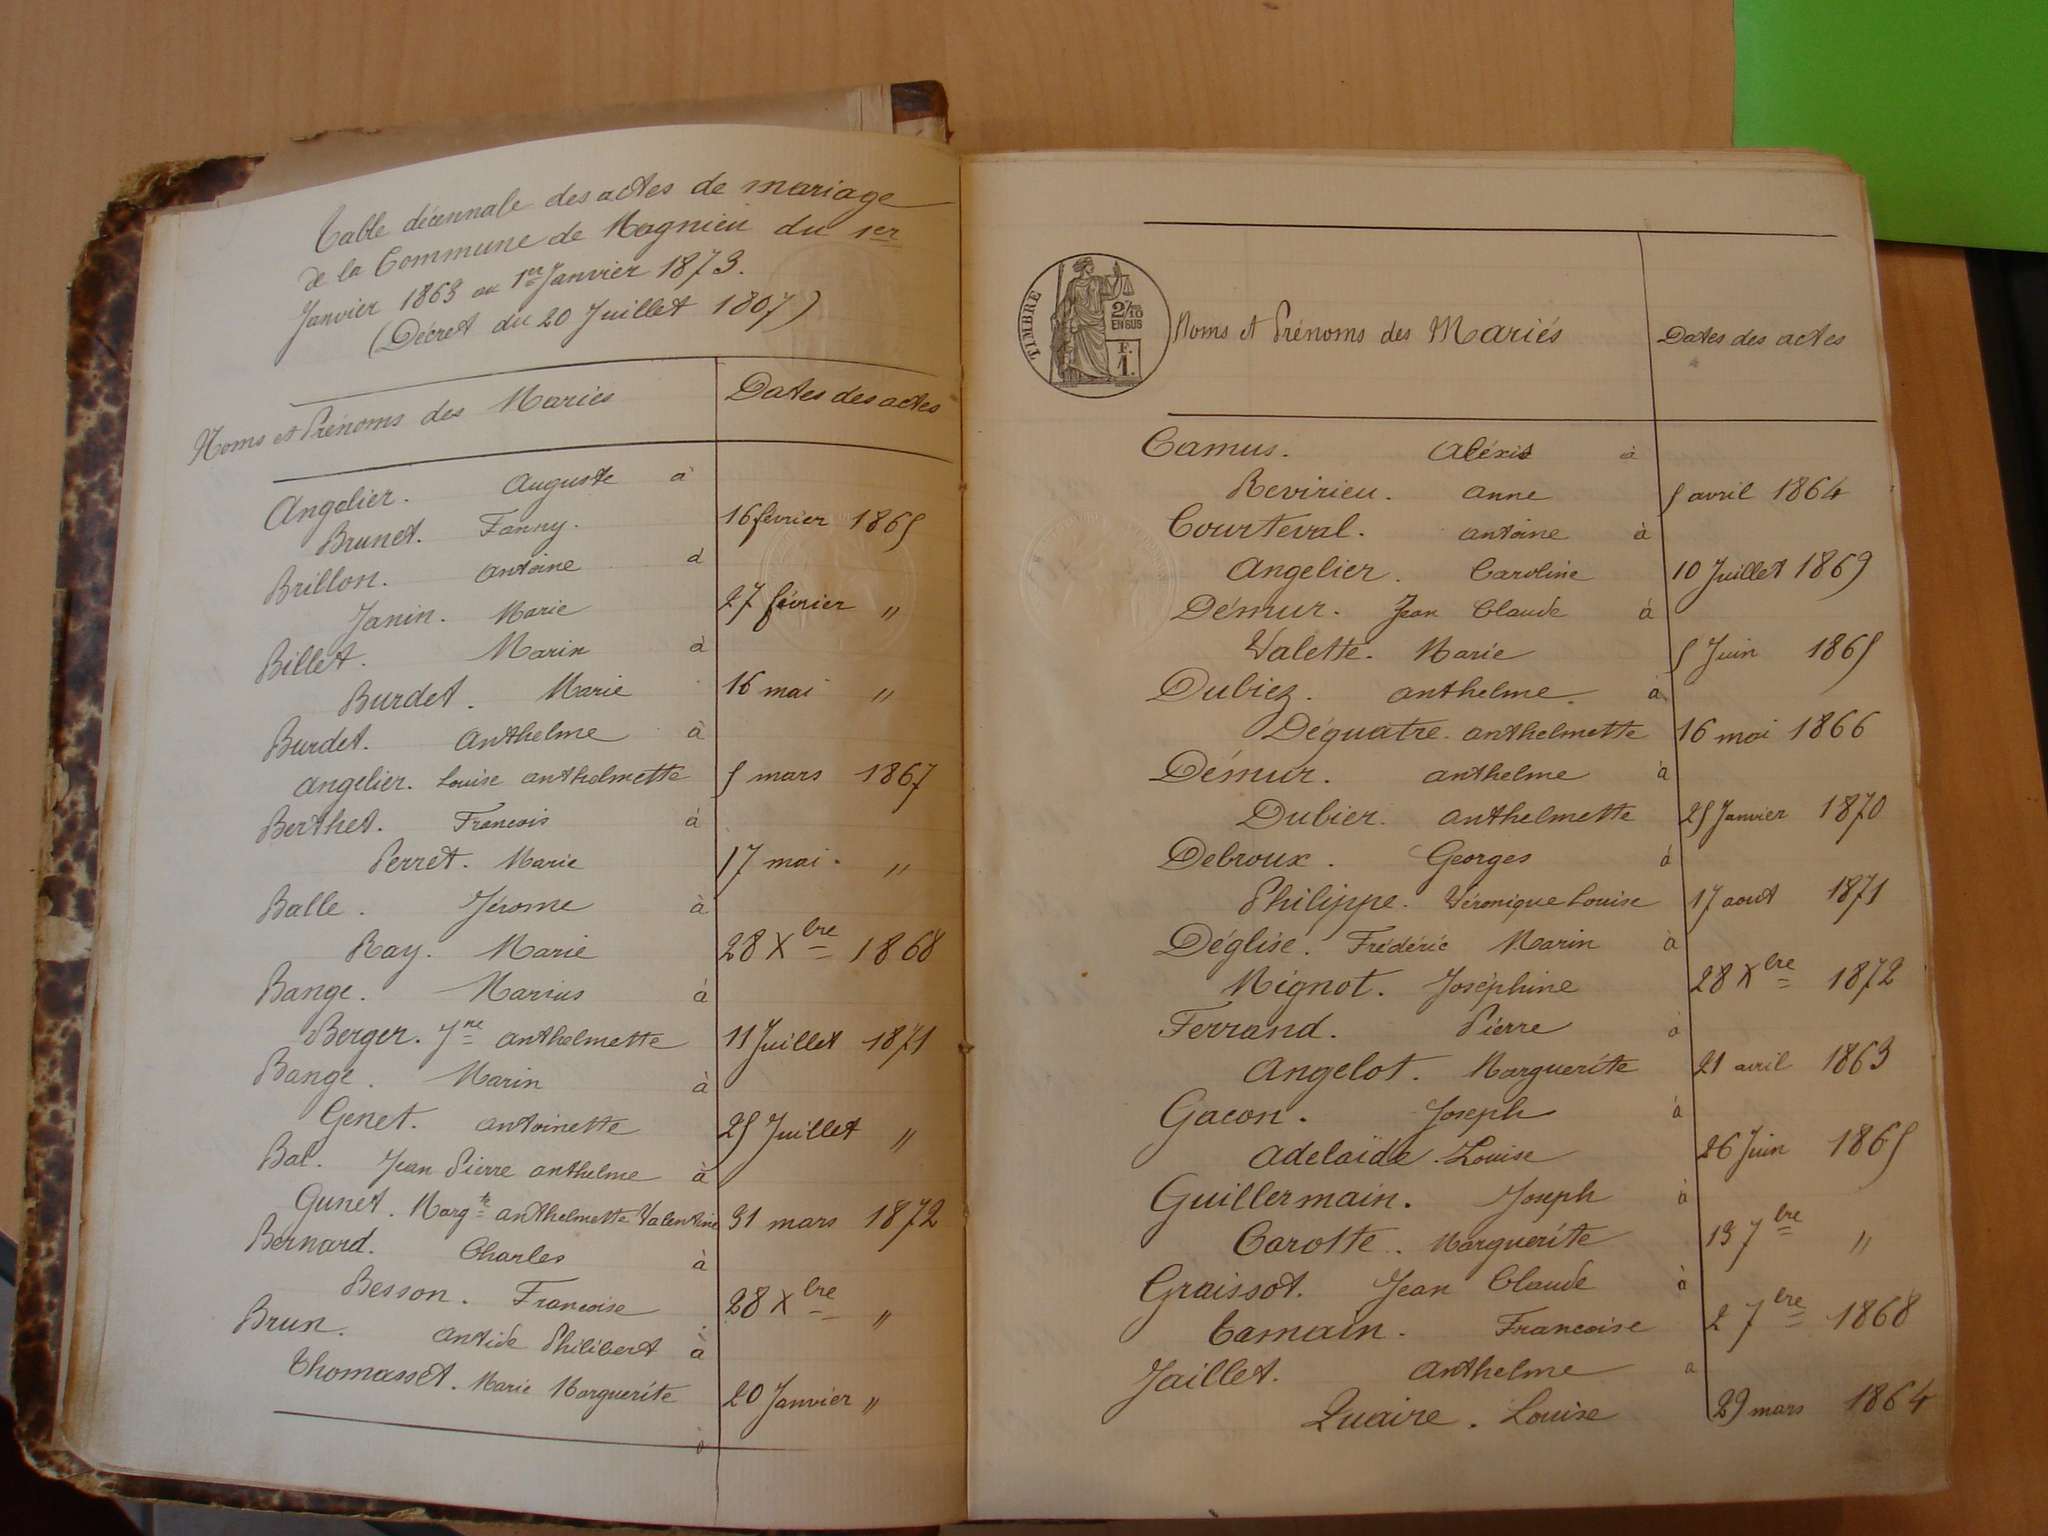 Table décennale des actes de mariage
de la Commune de Magnieu du 1er
Janvier 1863 au 1er Janvier 1873.
(Décret du 20 Juillet 1807)
Noms et Prénoms des Mariés Dates des actes
Angelier. Auguste à
Brunet. Fanny. 16 février 1865
Brillon. Antoine à
Janin. Marie 27 février "
Billet. Marin à
Burdet. Marie 16 mai "
Burdet. Anthelme à
Angelier. Louise Anthelmette 5 mars 1867
Berthet. Francois à
Perret. Marie 17 mai. "
Balle. Jérome à
Ray. Marie 28 Xbre 1868
Bange. Marius à
Berger. Jne Anthelmette 11 Juillet 1871
Bange. Marin à
Genet. Antoinette 25 Juillet "
Bal. Jean Pierre Anthelme à
Gunet. Margte Anthelmette Valentine 31 mars 1872
Bernard. Charles à
Besson. Francoise 28 Xbre "
Brun. Antide Philibert à
Thomasset. Marie Marguerite 20 Janvier "
TIMBRE
2/10
EN SUS
F.
1.
Noms et Prénoms des Mariés Dates des actes
Camus. Aléxis à
Revirieu. Anne 5 avril 1864
Courteval. Antoine à
Angelier. Caroline 10 Juillet 1869
Démur. Jean Claude à
Valette. Marie 5 Juin 1865
Dubiez. Anthelme à
Déquatre. Anthelmette 16 mai 1866
Démur. Anthelme à
Dubier. Anthelmette 25 Janvier 1870
Debroux. Georges à
Philippe. Véronique Louise 17 aout 1871
Déglise. Frédéric Marin à
Mignot. Joséphine 28 Xbre 1872
Ferrand. Pierre à
Angelot. Marguerite 21 avril 1863
Gacon. Joseph à
Adelaïde Louise 26 Juin 1865
Guillermain. Joseph à
Carotte. Marguerite 13 7bre "
Graissot. Jean Claude à
Camain. Francoise 2 7bre 1868
Jaillet. Anthelme à
Quaire. Louise 29 mars 1864